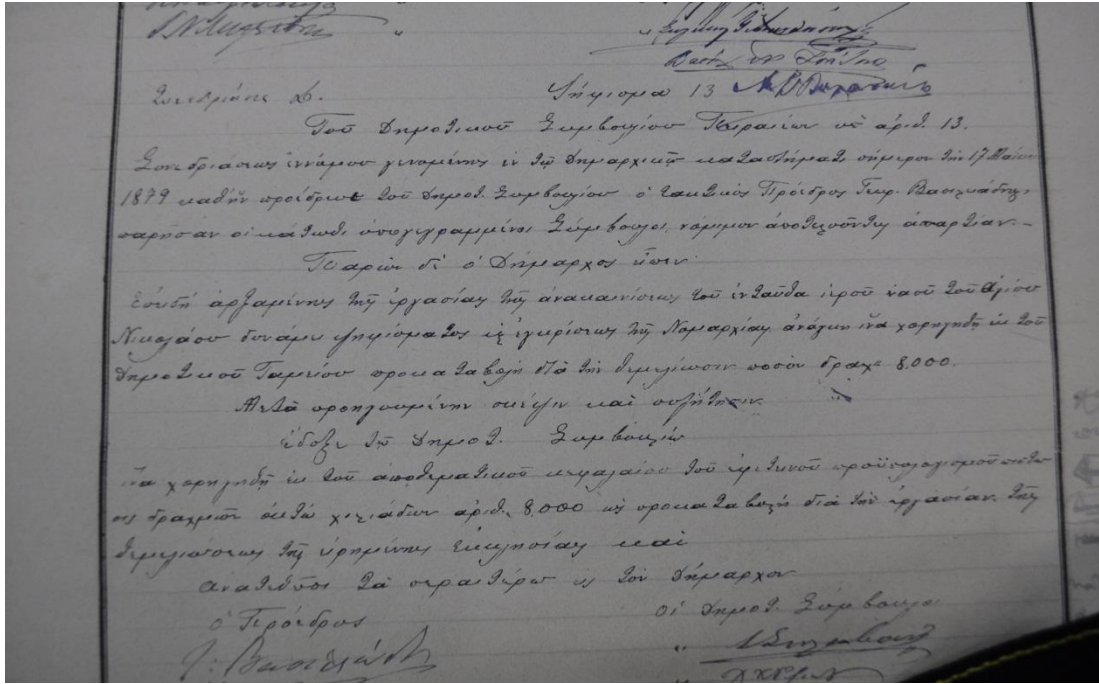 Συνεδρίασις Δ. Ψήφισμα 13
Τοῦ Δημοτικοῦ Συμβουλίου Πειραιῶς ὑπ' ἀριθ. 13.
Συνεδριάσεως ἐννόμου γενομένης ἐν τῷ Δημαρχικῷ καταστήματι σήμερον τὴν 17 Μαΐου
1879 καθ' ἣν προέδρευε τοῦ Δημοτ. Συμβουλίου ὁ τακτικὸς Πρόεδρος Γεωρ. Βασιλειάδης,
παρῆσαν οἱ κάτωθι ὑπογεγραμμένοι Σύμβουλοι, νόμιμον ἀποτελοῦντες ἀπαρτίαν.—
Παρὼν δὲ ὁ Δήμαρχος εἶπεν
Ἐπειδὴ ἀρξαμένης τῆς ἐργασίας τῆς ἀνακαινίσεως τοῦ ἐνταῦθα ἱεροῦ ναοῦ τοῦ Ἁγίου
Νικολάου δυνάμει ψηφίσματος ἐγκρίσεως τῆς Νομαρχίας ἀνάγκη ἵνα χορηγηθῇ ἐκ τοῦ
Δημοτικοῦ Ταμείου προκαταβολὴ διὰ τὴν θεμελίωσιν ποσὸν δραχ= 8,000.
Μετὰ προηγουμένην σκέψιν καὶ συζήτησιν
ἔδοξε τῷ Δημοτ. Συμβουλίῳ
ἵνα χορηγηθῇ ἐκ τοῦ ἀποθεματικοῦ κεφαλαίου τοῦ ἐφετεινοῦ προϋπολογισμοῦ πίστω
σις δραχμῶν ὀκτὼ χιλιάδων ἀριθ. 8,000 ὡς προκαταβολὴ διὰ τὴν ἐργασίαν τῆς
θεμελιώσεως τῆς εἰρημένης Ἐκκλησίας καὶ
Ἀναθέτει τὰ περαιτέρω εἰς τὸν Δήμαρχον
ὁ Πρόεδρος Οἱ Δημοτ. Σύμβουλοι
Γ. Βασιλειάδης